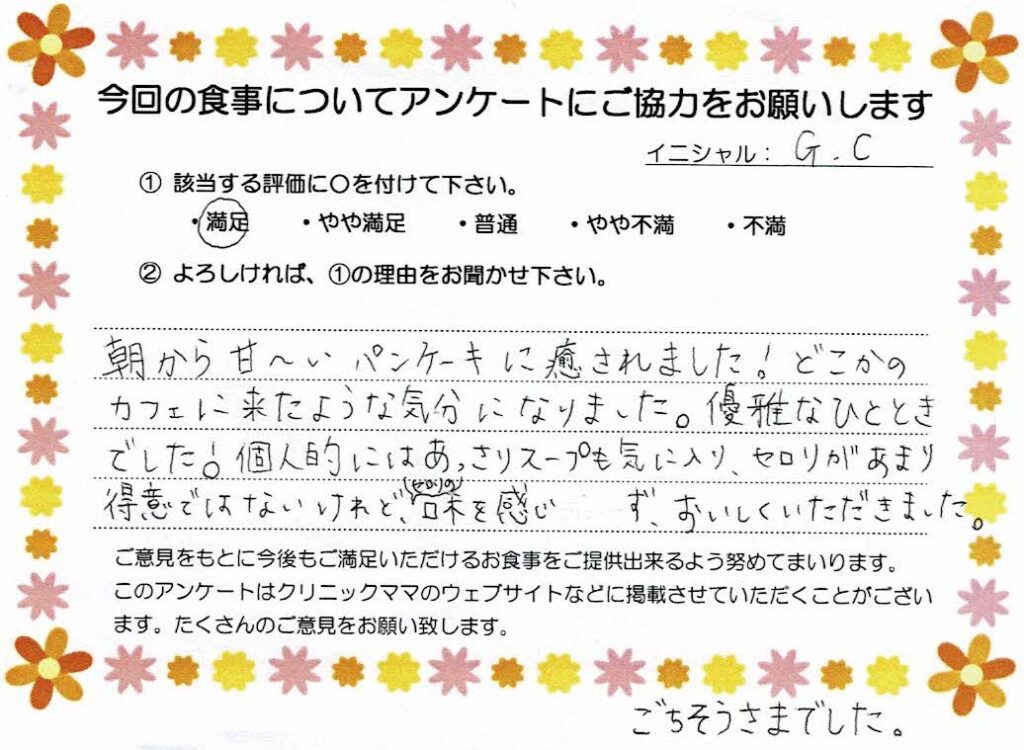 今回の食事についてアンケートにご協力をお願いします
イニシャル： G.C
① 該当する評価に〇を付けて下さい。
・満足 ・やや満足 ・普通 ・やや不満 ・不満
② よろしければ、①の理由をお聞かせ下さい。
朝から甘～いパンケーキに癒されました！どこかの
カフェに来たような気分になりました。優雅なひととき
でした！個人的にはあっさりスープも気に入り、セロリがあまり
得意ではないけれど、セロリの味を感じず、おいしくいただきました。
ご意見をもとに今後もご満足いただけるお食事をご提供出来るよう努めてまいります。
このアンケートはクリニックママのウェブサイトなどに掲載させていただくことがござい
ます。たくさんのご意見をお願い致します。
ごちそうさまでした。